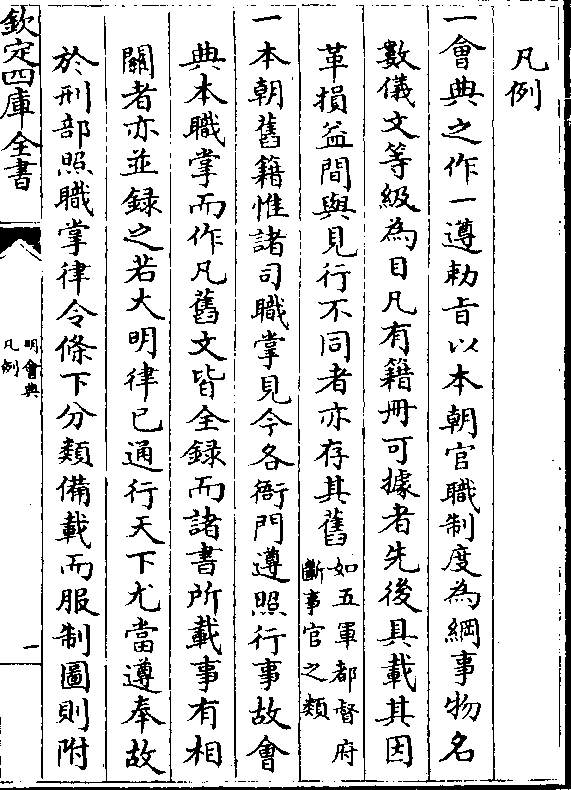 凡例
一會典之作一遵勅旨以本朝官職制度為綱事物名
數儀文等級為目凡有籍冊可據者先後具載其因
革損益間與見行不同者亦存其舊如五軍都督府
斷事官之類
一本朝舊籍惟諸司職掌見今各衙門遵照行事故會
典本職掌而作凡舊文皆全録而諸書所載事有相
關者亦並録之若大明律已通行天下尤當遵奉故
於刑部照職掌律令條下分類備載而服制圖則附
欽定四庫全書
明會典
凡例
一